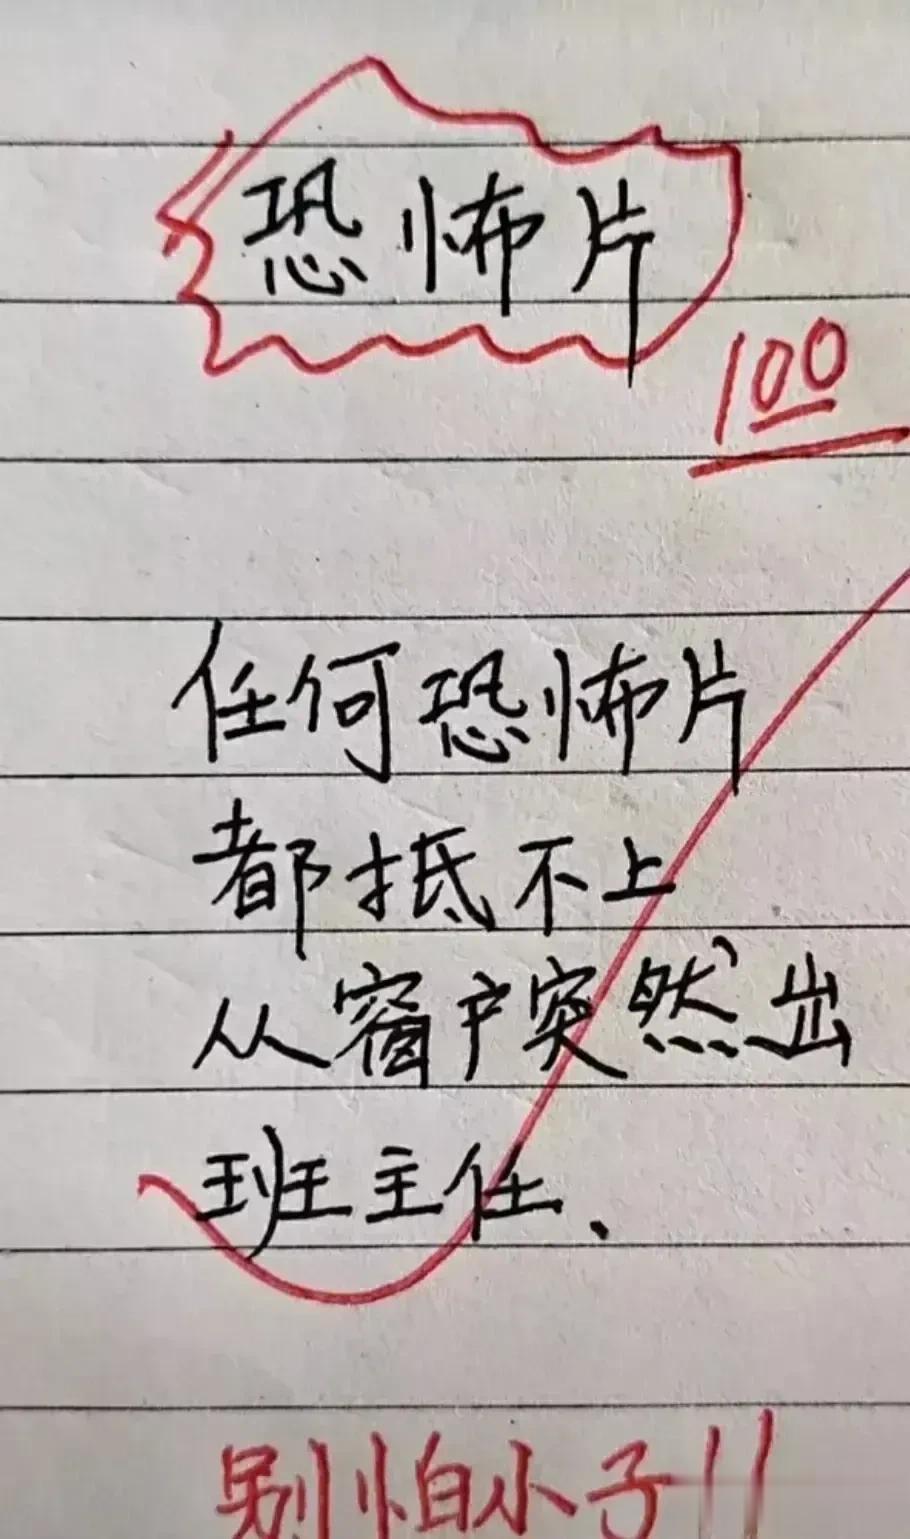 恐怖片
100
任何恐怖片
都抵不上
从窗户突然出
班主任、
别怕小子!!